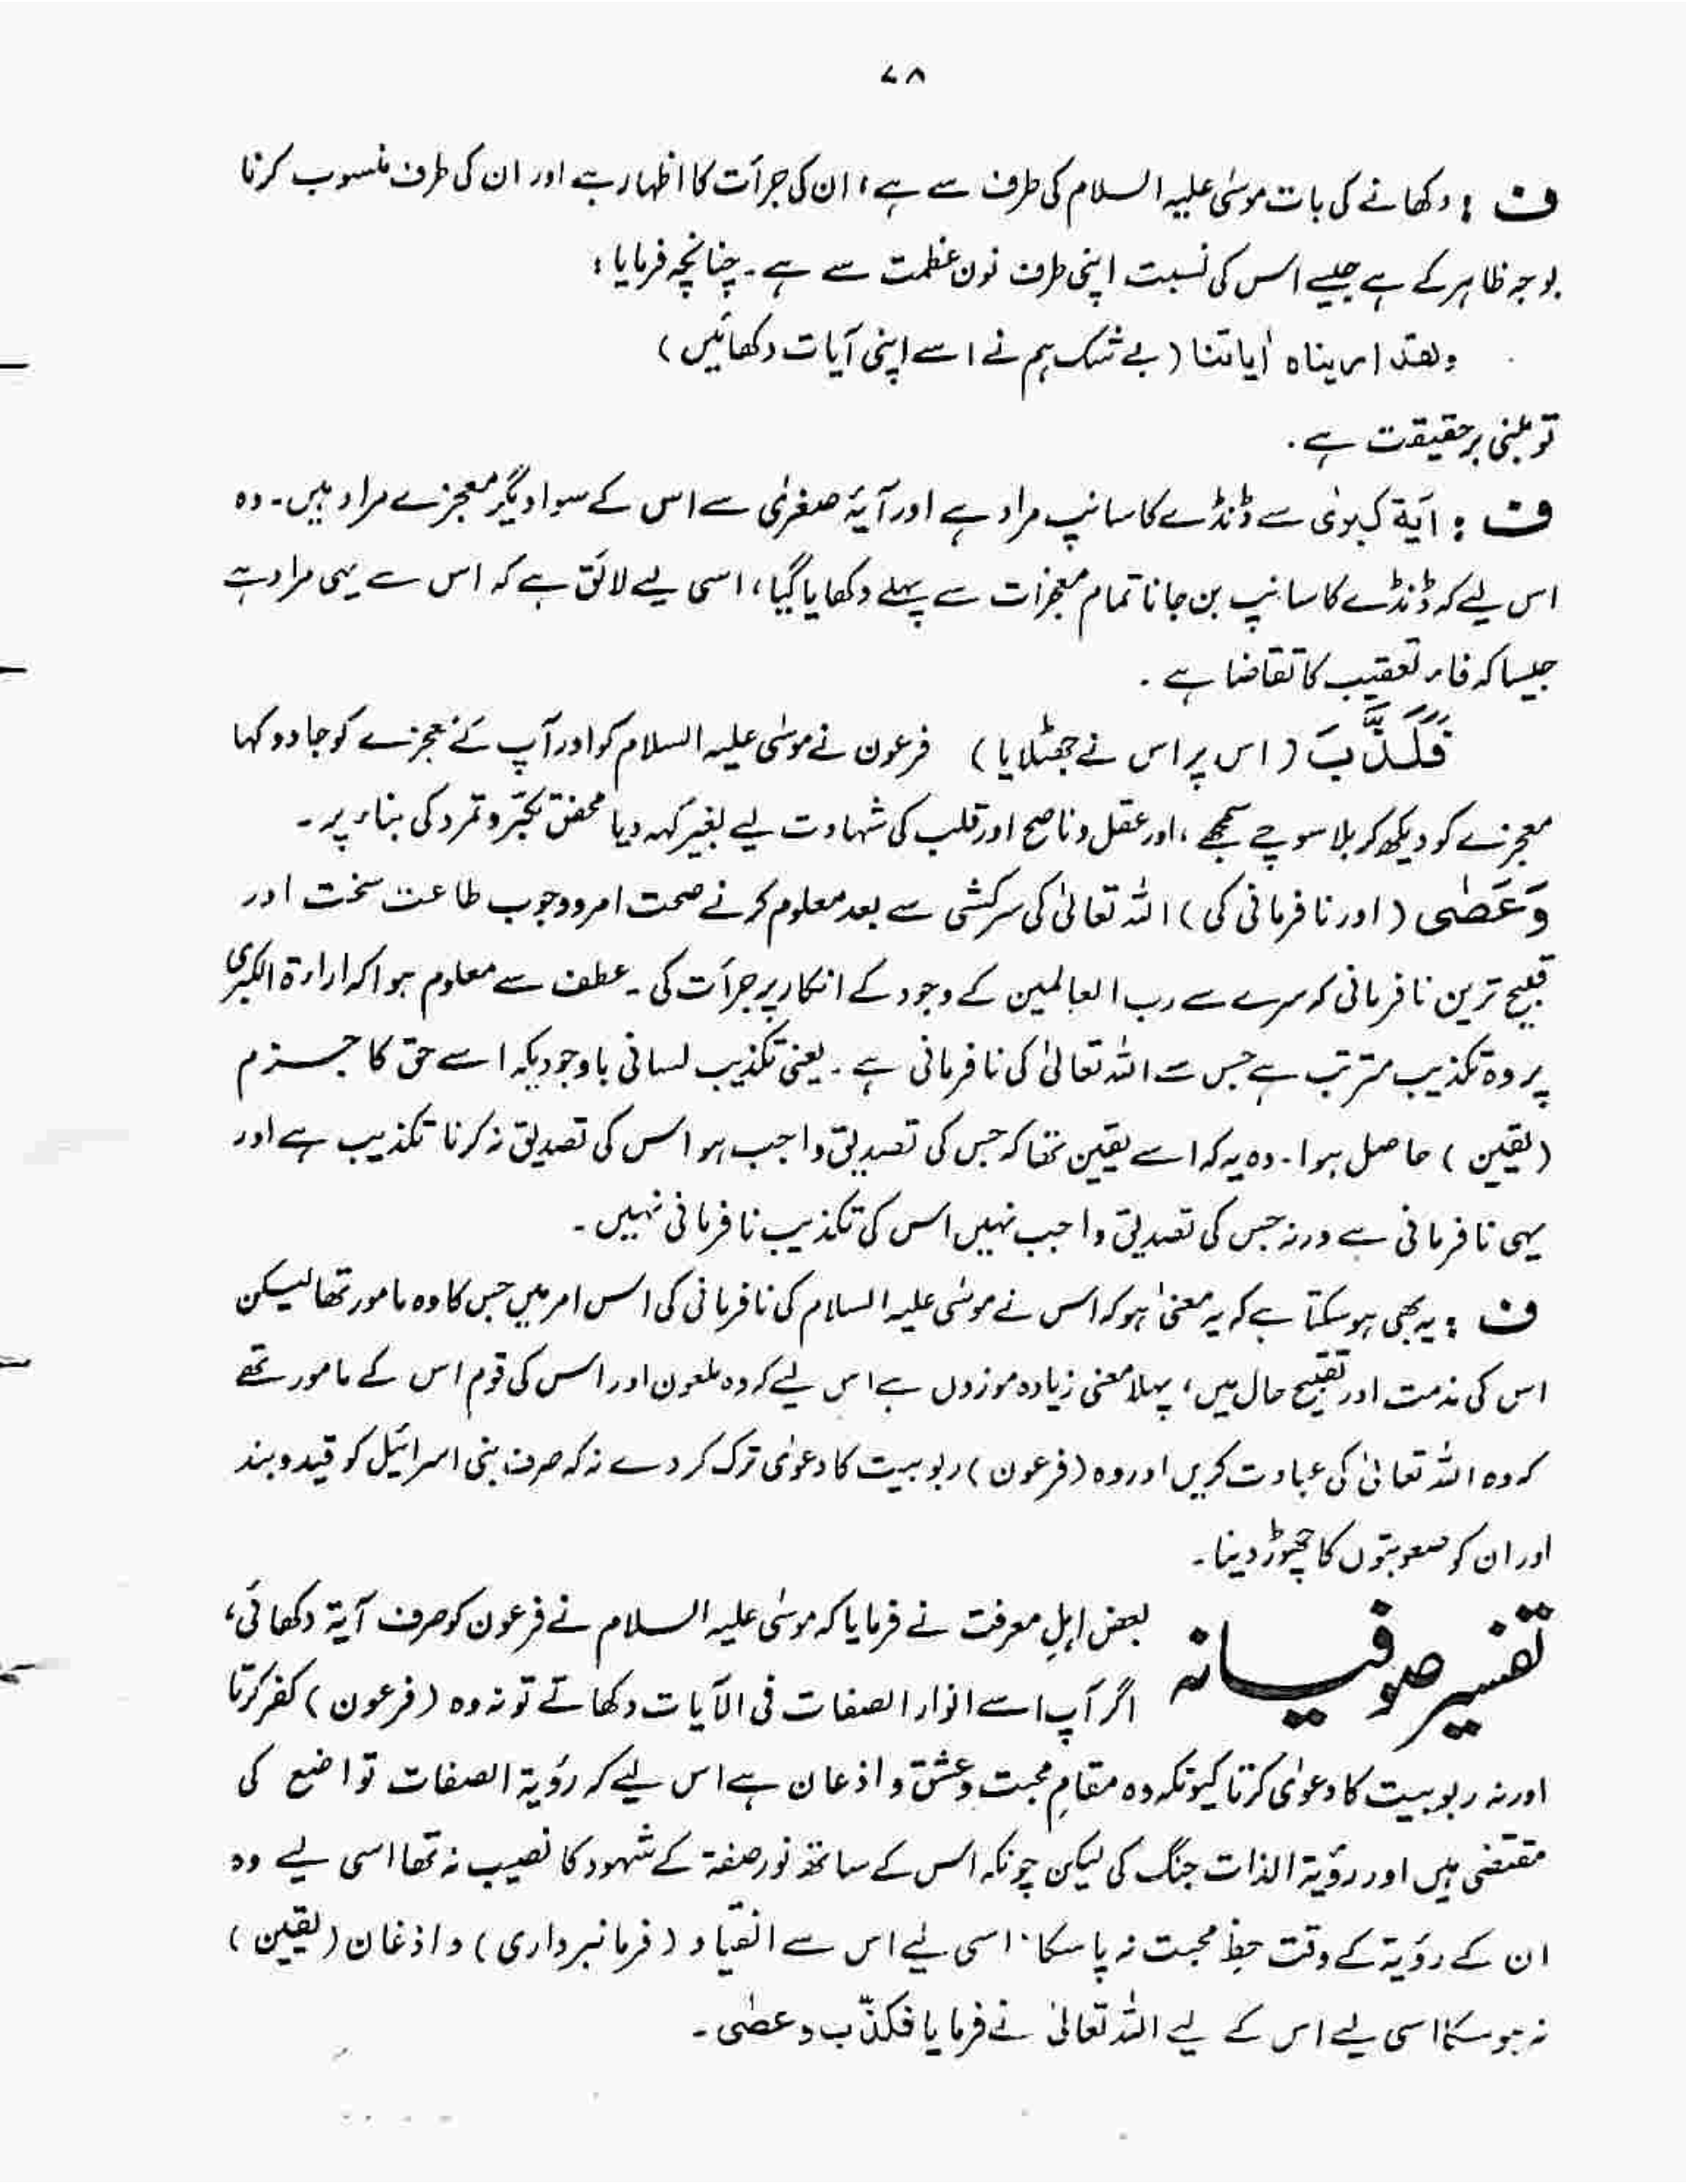 ۷۸
ف : دکھانے کی بات موسٰی علیہ السلام کی طرف سے ہے، ان کی جرأت کا اظہار ہے اور ان کی طرف منسوب کرنا
بوجہ ظاہر کے ہے جیسے اس کی نسبت اپنی طرف نون عظمت سے ہے۔ چنانچہ فرمایا :
ولقد اریناہ اٰیاتنا (بے شک ہم نے اسے اپنی آیات دکھائیں)
تو مبنی بر حقیقت ہے۔
ف : اٰیۃ کبرٰی سے ڈنڈے کا سانپ مراد ہے اور آیۂ صغرٰی سے اس کے سوا دیگر معجزے مراد ہیں۔ وہ
اس لیے کہ ڈنڈے کا سانپ بن جانا تمام معجزات سے پہلے دکھایا گیا، اسی لیے لائق ہے کہ اس سے یہی مراد ہے
جیسا کہ فاء تعقیب کا تقاضا ہے۔
فَکَذَّبَ (اس پر اس نے جھٹلایا) فرعون نے موسٰی علیہ السلام کو اور آپ کے معجزے کو جادو کہا
معجزے کو دیکھ کر بلا سوچے سمجھے، اور عقل و ناصح اور قلب کی شہادت لیے بغیر کہہ دیا محض تکبّر و تمرد کی بناء پر۔
وَعَصٰی (اور نافرمانی کی) اللہ تعالیٰ کی سرکشی سے بعد معلوم کرنے صحت امر و وجوب طاعت سخت اور
قبیح ترین نافرمانی کہ سرے سے رب العالمین کے وجود کے انکار پر جرأت کی۔ عطف سے معلوم ہوا کہ ارادۃ الکبری
پر وہ تکذیب مترتب ہے جس سے اللہ تعالیٰ کی نافرمانی ہے۔ یعنی تکذیب لسانی باوجودیکہ اسے حق کا جزم
(یقین) حاصل ہوا۔ وہ یہ کہ اسے یقین تھا کہ جس کی تصدیق واجب ہو اس کی تصدیق نہ کرنا تکذیب ہے اور
یہی نافرمانی ہے ورنہ جس کی تصدیق واجب نہیں اس کی تکذیب نافرمانی نہیں۔
ف : یہ بھی ہو سکتا ہے کہ یہ معنیٰ ہو کہ اس نے موسٰی علیہ السلام کی نافرمانی کی اس امر میں جس کا وہ مامور تھا لیکن
اس کی مذمت اور تقبیح حال میں، پہلا معنی زیادہ موزوں ہے اس لیے کہ وہ ملعون اور اس کی قوم اس کے مامور تھے
کہ وہ اللہ تعالیٰ کی عبادت کریں اور وہ (فرعون) ربوبیت کا دعوٰی ترک کر دے نہ کہ صرف بنی اسرائیل کو قید و بند
اور ان کو صعوبتوں کا چھوڑ دینا۔
تفسیر صوفیانہ بعض اہلِ معرفت نے فرمایا کہ موسٰی علیہ السلام نے فرعون کو صرف آیۃ دکھائی،
اگر آپ اسے انوار الصفات فی الآیات دکھاتے تو نہ وہ (فرعون) کفر کرتا
اور نہ ربوبیت کا دعوٰی کرتا کیونکہ وہ مقامِ محبت و عشق و اذعان ہے اس لیے کہ رؤیۃ الصفات تواضع کی
مقتضی ہیں اور رؤیۃ الذات جنگ کی لیکن چونکہ اس کے ساتھ نور صفۃ کے شہود کا نصیب نہ تھا اسی لیے وہ
ان کے رؤیۃ کے وقت حظِ محبت نہ پا سکا۔ اسی لیے اس سے انقیاد (فرمانبرداری) و اذغان (یقین)
نہ ہو سکا اسی لیے اس کے لیے اللہ تعالیٰ نے فرمایا فکذّب و عصٰی۔